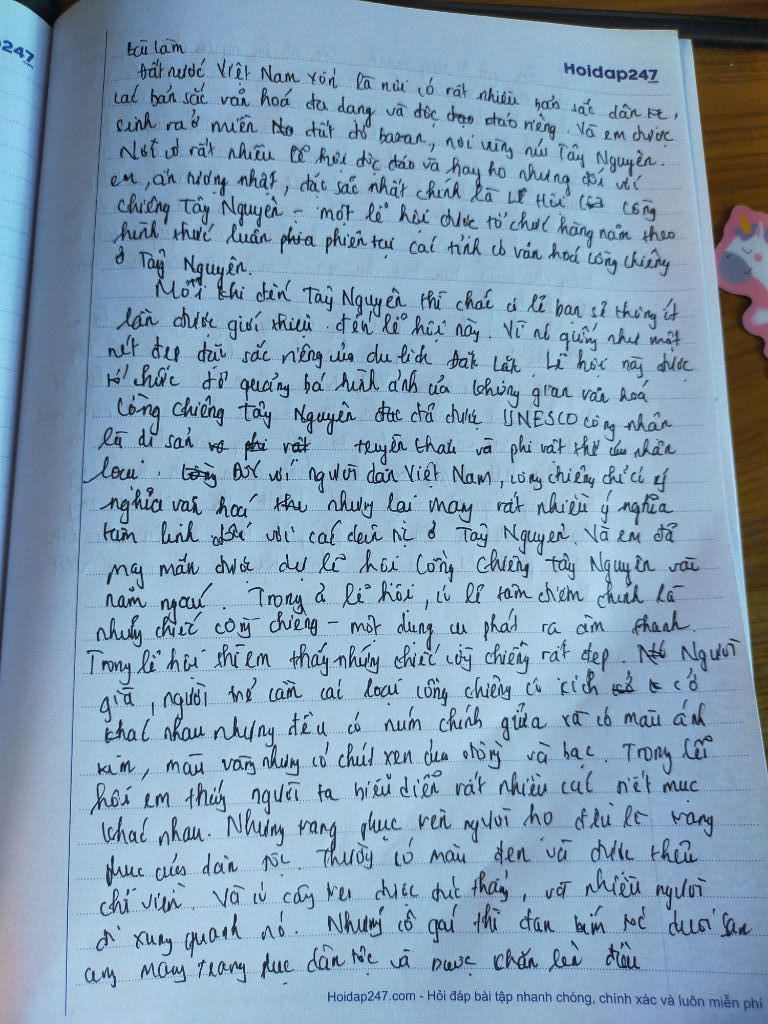 247
Hoidap247
.com
bài làm
Đất nước Việt Nam vốn là nơi có rất nhiều bản sắc dân tộc,
các bản sắc văn hoá đa dạng và độc đáo riêng. Và em được
sinh ra ở miền đất đỏ bazan, nơi vùng núi Tây Nguyên.
Nơi có rất nhiều lễ hội độc đáo và hay ho nhưng đối với
em, ấn tượng nhất, đặc sắc nhất chính là Lễ Hội Cồng
chiêng Tây Nguyên – một lễ hội được tổ chức hàng năm theo
hình thức luân phiên tại các tỉnh có văn hoá cồng chiêng
ở Tây Nguyên.
Mỗi khi đến Tây Nguyên thì chắc có lẽ bạn sẽ không ít
lần được giới thiệu đến lễ hội này. Vì nó giống như một
nét đẹp đặc sắc riêng của du lịch Đắk Lắk. Lễ hội này được
tổ chức để quảng bá hình ảnh của không gian văn hoá
Cồng chiêng Tây Nguyên đã được UNESCO công nhận
là di sản truyền khẩu và phi vật thể của nhân
loại. Đối với người dân Việt Nam, cồng chiêng chỉ có ý
nghĩa văn hoá nhưng lại mang rất nhiều ý nghĩa
tâm linh đối với các dân tộc ở Tây Nguyên. Và em đã
may mắn được dự lễ hội Cồng chiêng Tây Nguyên vài
năm ngoái. Trong lễ hội, có lẽ tâm điểm chính là
những chiếc cồng chiêng – một dụng cụ phát ra âm thanh.
Trong lễ hội thì em thấy những chiếc cồng chiêng rất đẹp. Người
già, người trẻ cầm các loại cồng chiêng có kích cỡ
khác nhau nhưng đều có núm chính giữa và có màu ánh
kim, màu vàng nhưng có chút xen của đồng và bạc. Trong lễ
hội em thấy người ta biểu diễn rất nhiều các tiết mục
khác nhau. Những trang phục trên người họ đều là trang
phục của dân tộc. Thường có màu đen và được thêu
chỉ viền. Và có cây nêu được dựng thẳng, với nhiều người
đi xung quanh nó. Những cô gái thì đan bím tóc dưới
cùng mang trang phục dân tộc và được chăn lên đầu
Hoidap247.com - Hỏi đáp bài tập nhanh chóng, chính xác và luôn miễn phí